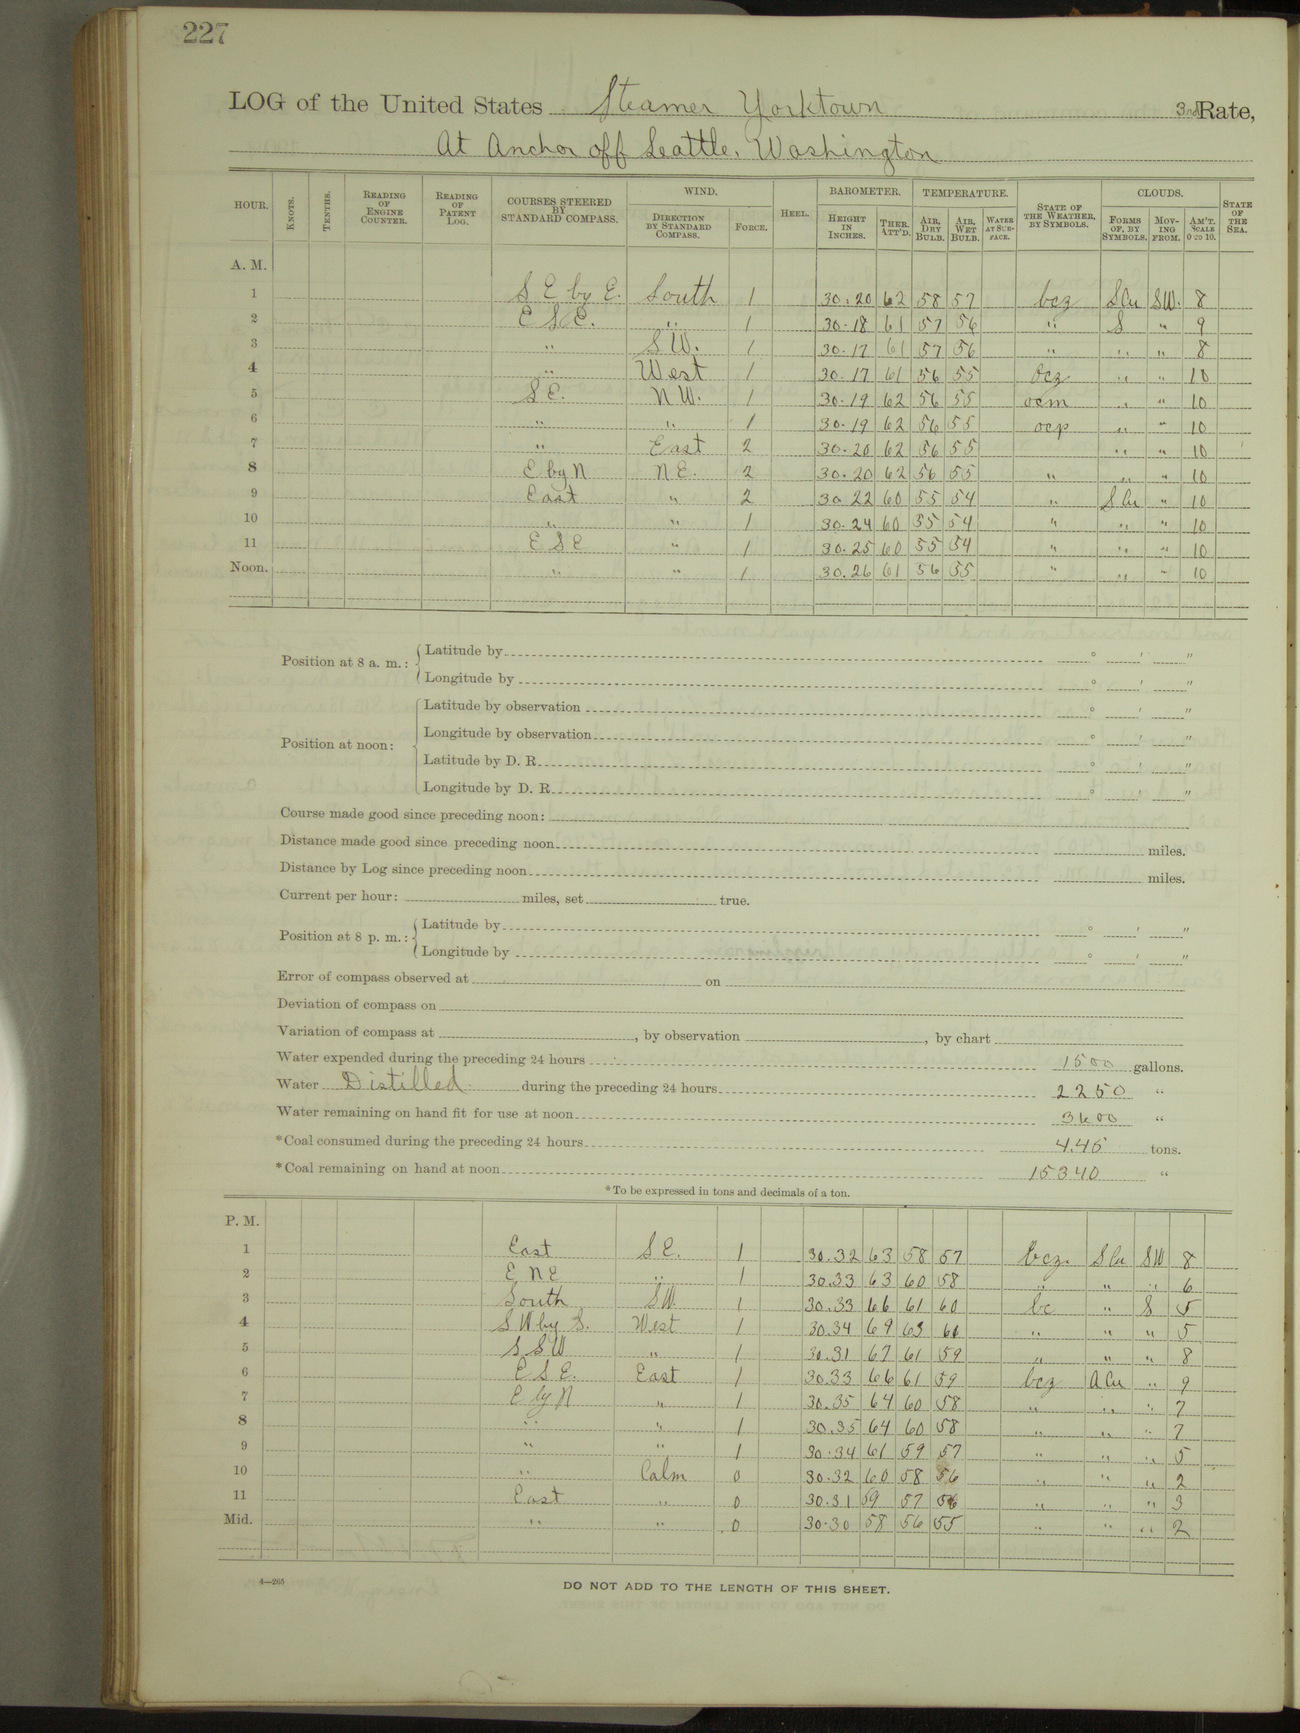 227
LOG of the United States Steamer Yorktown 3rd Rate,
At Anchor off Seattle, Washington
HOUR. KNOTS. TENTHS. READING OF ENGINE COUNTER. READING OF PATENT LOG. COURSES STEERED BY STANDARD COMPASS. WIND. DIRECTION BY STANDARD COMPASS. FORCE. HEEL. BAROMETER. HEIGHT IN INCHES. THER. ATT'D. TEMPERATURE. AIR, DRY BULB. AIR, WET BULB. WATER AT SURFACE. STATE OF THE WEATHER, BY SYMBOLS. CLOUDS. FORMS OF, BY SYMBOLS. MOVING FROM. AM'T. SCALE 0 TO 10. STATE OF THE SEA.
A. M.
1 S E by E. South 1 30.20 62 58 57 bcz S Cu SW. 8
2 E S E. " 1 30.18 61 57 56 " S " 9
3 " S W. 1 30.17 61 57 56 " " " 8
4 " West 1 30.17 61 56 55 ocz " " 10
5 S E. N W. 1 30.19 62 56 55 ocm " " 10
6 " " 1 30.19 62 56 55 ocp " " 10
7 " East 2 30.20 62 56 55 " " 10
8 E by N N E. 2 30.20 62 56 55 " " " 10
9 East " 2 30 22 60 55 54 " S Cu " 10
10 " " 1 30.24 60 55 54 " " " 10
11 E S E " 1 30.25 60 55 54 " " " 10
Noon. " " 1 30.26 61 56 55 " " " 10
Position at 8 a. m.: Latitude by ° ' "
Longitude by ° ' "
Position at noon: Latitude by observation ° ' "
Longitude by observation ° ' "
Latitude by D. R. ° ' "
Longitude by D. R. ° ' "
Course made good since preceding noon:
Distance made good since preceding noon miles.
Distance by Log since preceding noon miles.
Current per hour: miles, set true.
Position at 8 p. m.: Latitude by ° ' "
Longitude by ° ' "
Error of compass observed at on
Deviation of compass on
Variation of compass at , by observation , by chart
Water expended during the preceding 24 hours 1500 gallons.
Water Distilled during the preceding 24 hours 2250 "
Water remaining on hand fit for use at noon 3600 "
*Coal consumed during the preceding 24 hours 4.45 tons.
*Coal remaining on hand at noon 15340 "
*To be expressed in tons and decimals of a ton.
P. M.
1 East S E. 1 30.32 63 58 57 bcz. S Cu SW 8
2 E N E " 1 30.33 63 60 58 " " " 6
3 South S W 1 30.33 66 61 60 bc " S 5
4 S W by S. West 1 30.34 69 63 61 " " " 5
5 S S W " 1 30.31 67 61 59 " " " 8
6 E S E. East 1 30.33 66 61 59 bcz A Cu " 9
7 E by N " 1 30.35 64 60 58 " " " 7
8 " " 1 30.35 64 60 58 " " " 7
9 " " 1 30.34 61 59 57 " " " 5
10 " Calm 0 30.32 60 58 56 " " " 2
11 East " 0 30.31 59 57 56 " " " 3
Mid. " " 0 30.30 58 56 55 " " " 2
4—265
DO NOT ADD TO THE LENGTH OF THIS SHEET.